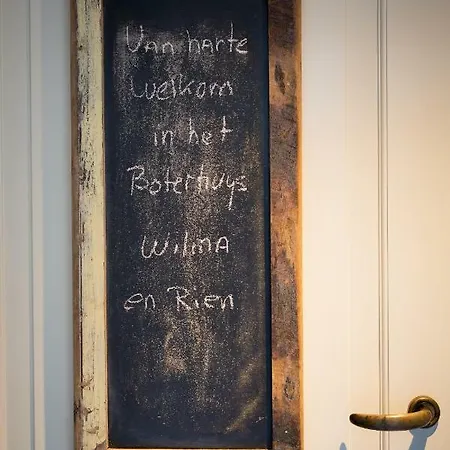 Van harte
welkom
in het
Boterhuys
Wilma
en Rien